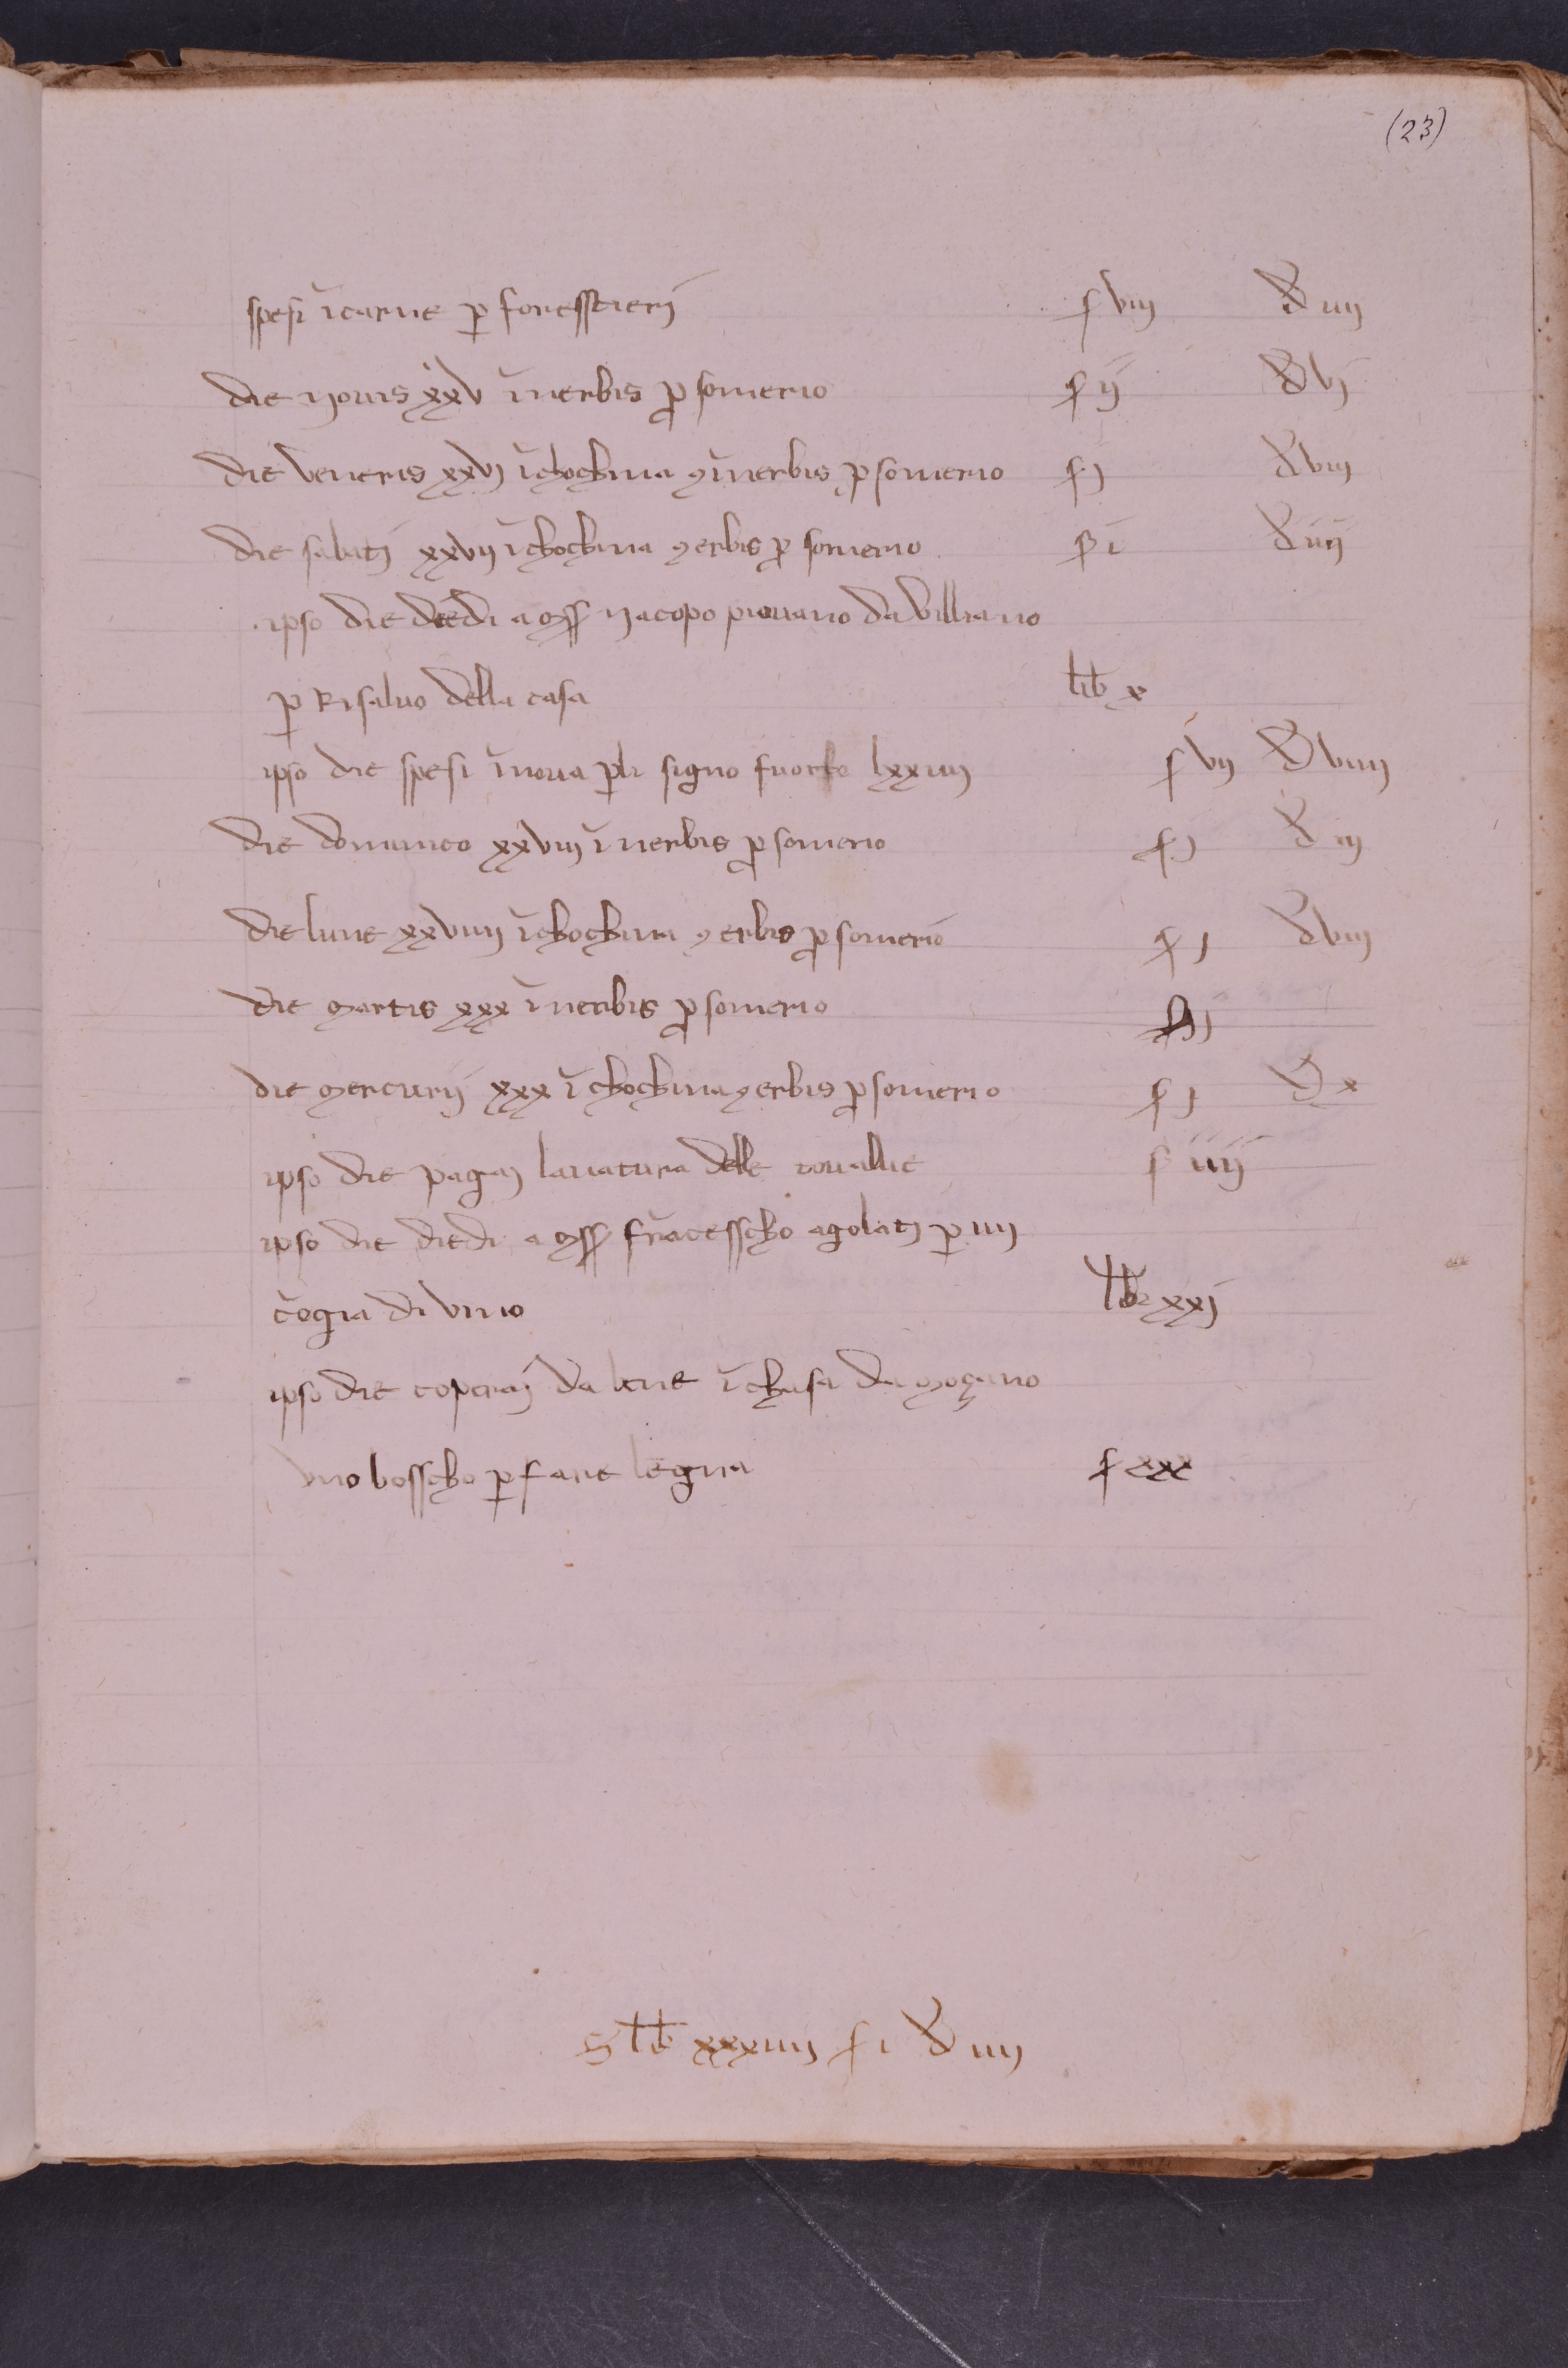 (23)
spesi ĩcarne p̱ foresstierj ſ viij đ iiij
die yovis xxv ĩnerbis p̱ somerio ſ ij đ vj
die veneris xxvj ĩchochina ⁊ ĩnerbis p̱ somerio ſ j đ viij
die sabatj xxvij ĩchochina ⁊ erbis p̱ somerio ſ i đ iiij
ipso die diedi a mss yacopo piovano da villiano
p̱ Risalvo della casa lib x
ipso die spesi ĩnova p̱li signo fuor lxxiiij ſ vij đ viiij
die dominico xxviij ĩnerbis p̱ somerio ſ j đ iij
die lune xxviiij ĩchochina ⁊ erbis p̱ somerio ſ j đ viij
die martis xxx ĩnerbis p̱ somerio ſ j
die mercurij xxx ĩchochina ⁊ erbis p̱ somerio ſ j đ x
ipso die pagaj lavatura delle tovallie ſ iiij
ipso die diedi a mss frãcesscho agolatj p̱ iiij
cõgia di vino lib xxj
ipso die coperaj da bene ĩchasa da moçano
uno bosscho p̱ fare legna ſ xxx
S lib xxxiiij ſ i đ iiij